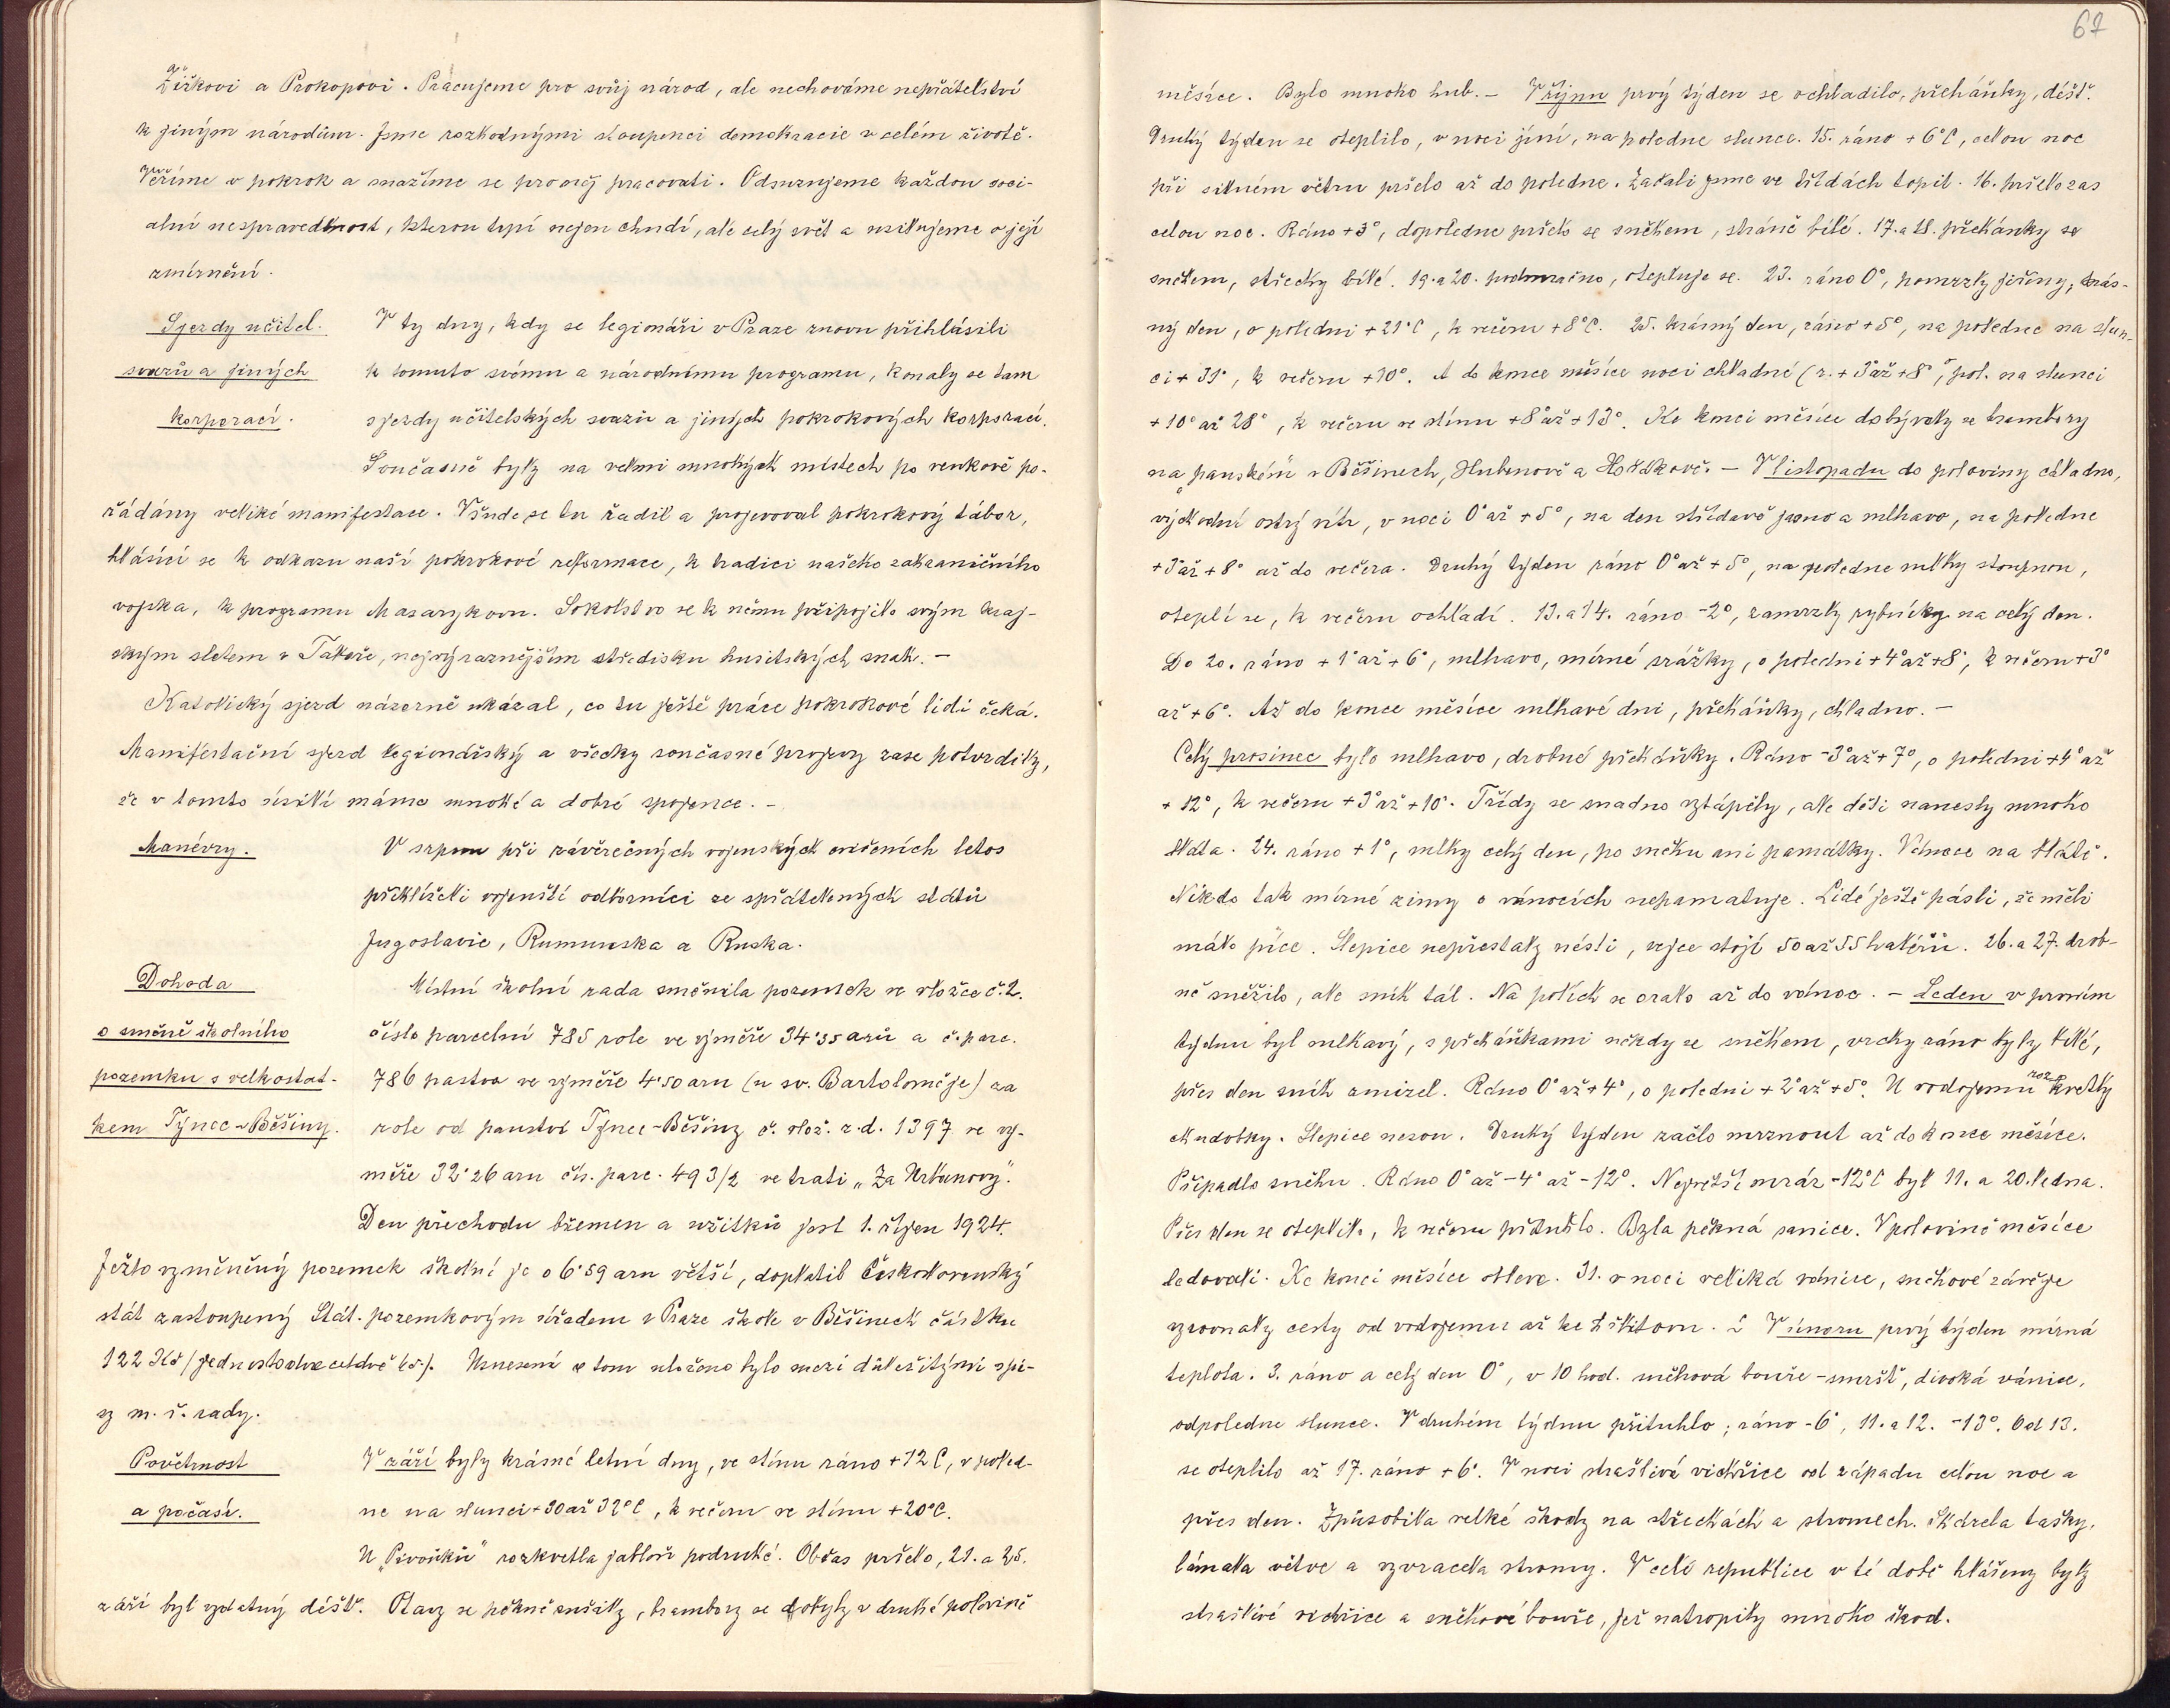 Žižkovi a Prokopovi. Pracujeme pro svůj národ, ale nechováme nepřátelství
k jiným národům. Jsme rozhodnými stoupenci demokracie v celém životě.
Věříme v pokrok a snažíme se pro něj pracovati. Odsuzujeme každou soci-
alní nespravedlnost, kterou trpí nejen chudí, ale celý svět a usilujeme o její
zmírnění.
Sjezdy učitel. V ty dny, kdy se legionáři v Praze znovu přihlásili
svazů a jiných k tomuto svému a národnímu programu, konaly se tam
korporací. sjezdy učitelských svazů a jiných pokrokových korporací.
Současně byly na velmi mnohých místech po venkově po-
řádány veliké manifestace. Všude se tu řadil a projevoval pokrokový tábor,
hlásící se k odkazu naší pokrokové reformace, k tradici našeho zahraničního
vojska, k programu Masarykovu. Sokolstvo se k němu připojilo svým kraj-
ským sletem v Táboře, nejvýraznějším středisku husitských snah. -
Katolický sjezd názorně ukázal, co tu ještě práce pokrokové lidi čeká.
Manifestační sjezd legionářský a všecky současné projevy zase potvrdily,
že v tomto úsilí máme mnohé a dobré spojence. -
Manévry. V srpnu při závěrečných vojenských cvičeních letos
přihlíželi vojenští odborníci ze spřátelených států
Jugoslavie, Rumunska a Ruska.
Dohoda Místní školní rada směnila pozemek ve vložce č. 2.
o směně školního číslo parcelní 785 role ve výměře 34·35 arů a č. parc.
pozemku s velkostat- 786 pastva ve výměře 4·50 aru (u sv. Bartoloměje) za
kem Týnec-Běšiny. role od panství Týnec-Běšiny č. vlož. z. d. 1397 ve vý-
měře 32·26 aru čís. parc. 493/2 ve trati „Za Urbanovy".
Den přechodu břemen a užitků jest 1. říjen 1924.
Ježto vyměněný pozemek školní je o 6·59 aru větší, doplatil Československý
stát zastoupený Stát. pozemkovým úřadem v Praze škole v Běšinech částku
122 Kč (jednostodvacetdvě kč). Usnesení o tom uloženo bylo mezi důležitými spi-
sy m. š. rady.
Povětrnost V září byly krásné letní dny, ve stínu ráno +12 C, v poled-
a počasí. ne na slunci +30 až 32°C, k večeru ve stínu +20°C.
U „Pivoňků" rozkvetla jabloň podruhé. Občas pršelo, 21. a 25.
září byl vydatný déšť. Otavy se pěkně sušily, brambory se dobyly v druhé polovině
62
měsíce. Bylo mnoho hub. - V říjnu prvý týden se ochladilo, přeháňky, déšť.
Druhý týden se oteplilo, v noci jíní, na poledne slunce. 15. ráno +6°C, celou noc
při silném větru pršelo až do poledne. Začali jsme ve třídách topit. 16. pršelo zas
celou noc. Ráno +3°, dopoledne pršelo se sněhem, stráně bílé. 17. a 18. přehánky se
sněhem, střechy bílé. 19. a 20. podmračno, otepluje se. 23. ráno 0°, pomrzly jiřiny, krás-
ný den, o poledni +21°C, k večeru +8°C. 25. krásný den, ráno +5°, na poledne na slun-
ci + 31°, k večeru +10°. A do konce měsíce noci chladné (r. + 3° až +8°, pol. na slunci
+ 10° až 28°, k večeru ve stínu +8° až +13°. Ke konci měsíce dobývaly se brambory
na panském v Běšinech, Hubenově a Hořákově. - V listopadu do poloviny chladno,
východní ostrý vítr, v noci 0° až +5°, na den střídavě jasno a mlhavo, na poledne
+3° až +8° až do večera. Druhý týden ráno 0° až +5°, na poledne mlhy stoupnou,
oteplí se, k večeru ochladí. 13. a 14. ráno -2°, zamrzly rybníčky na celý den.
Do 20. ráno + 1° až +6°, mlhavo, mírné srážky, o poledni +4° až +8°, k večeru +3°
až +6°. Až do konce měsíce mlhavé dni, přeháňky, chladno. -
Celý prosinec bylo mlhavo, drobné přeháňky. Ráno -3° až + 7°, o poledni +4° až
+ 12°, k večeru +3° až +10°. Třídy se snadno vytápěly, ale děti nanesly mnoho
bláta. 24. ráno +1°, mlhy celý den, po sněhu ani památky. Vánoce na blátě.
Nikdo tak mírné zimy o vánocích nepamatuje. Lidé ještě pásli, že měli
málo píce. Slepice nepřestaly nésti, vejce stojí 50 až 55 haléřů. 26. a 27. drob-
ně sněžilo, ale sníh tál. Na polích se oralo až do vánoc. - Leden v prvním
týdnu byl mlhavý, s přeháňkami někdy se sněhem, vrchy ráno byly bílé,
přes den sníh zmizel. Ráno 0° až +4°, o poledni + 2° až +5°. U vodojemu rozkvetly
chudobky. Slepice nesou. Druhý týden začlo mrznout až do konce měsíce.
Připadlo sněhu. Ráno 0° až -4° až -12°. Největší mráz -12°C byl 11. a 20. ledna.
Přes den se oteplilo, k večeru přituhlo. Byla pěkná sanice. V polovině měsíce
ledovali. Ke konci měsíce obleva. 31. v noci veliká vánice, sněhové závěje
vyrovnaly cesty od vodojemu až ke hřbitovu. V únoru prvý týden mírná
teplota. 3. ráno a celý den 0°, v 10 hod. sněhová bouře - smršť, divoká vánice,
odpoledne slunce. V druhém týdnu přituhlo; ráno -6°, 11. a 12. -13°. Od 13.
se oteplilo až 17. ráno +6°. V noci strašlivá vichřice od západu celou noc a
přes den. Způsobila velké škody na střechách a stromech. Shazela tašky,
lámala větve a vyvracela stromy. V celé republice v té době hlášeny byly
strašlivé vichřice a sněhové bouře, jež natropily mnoho škod.